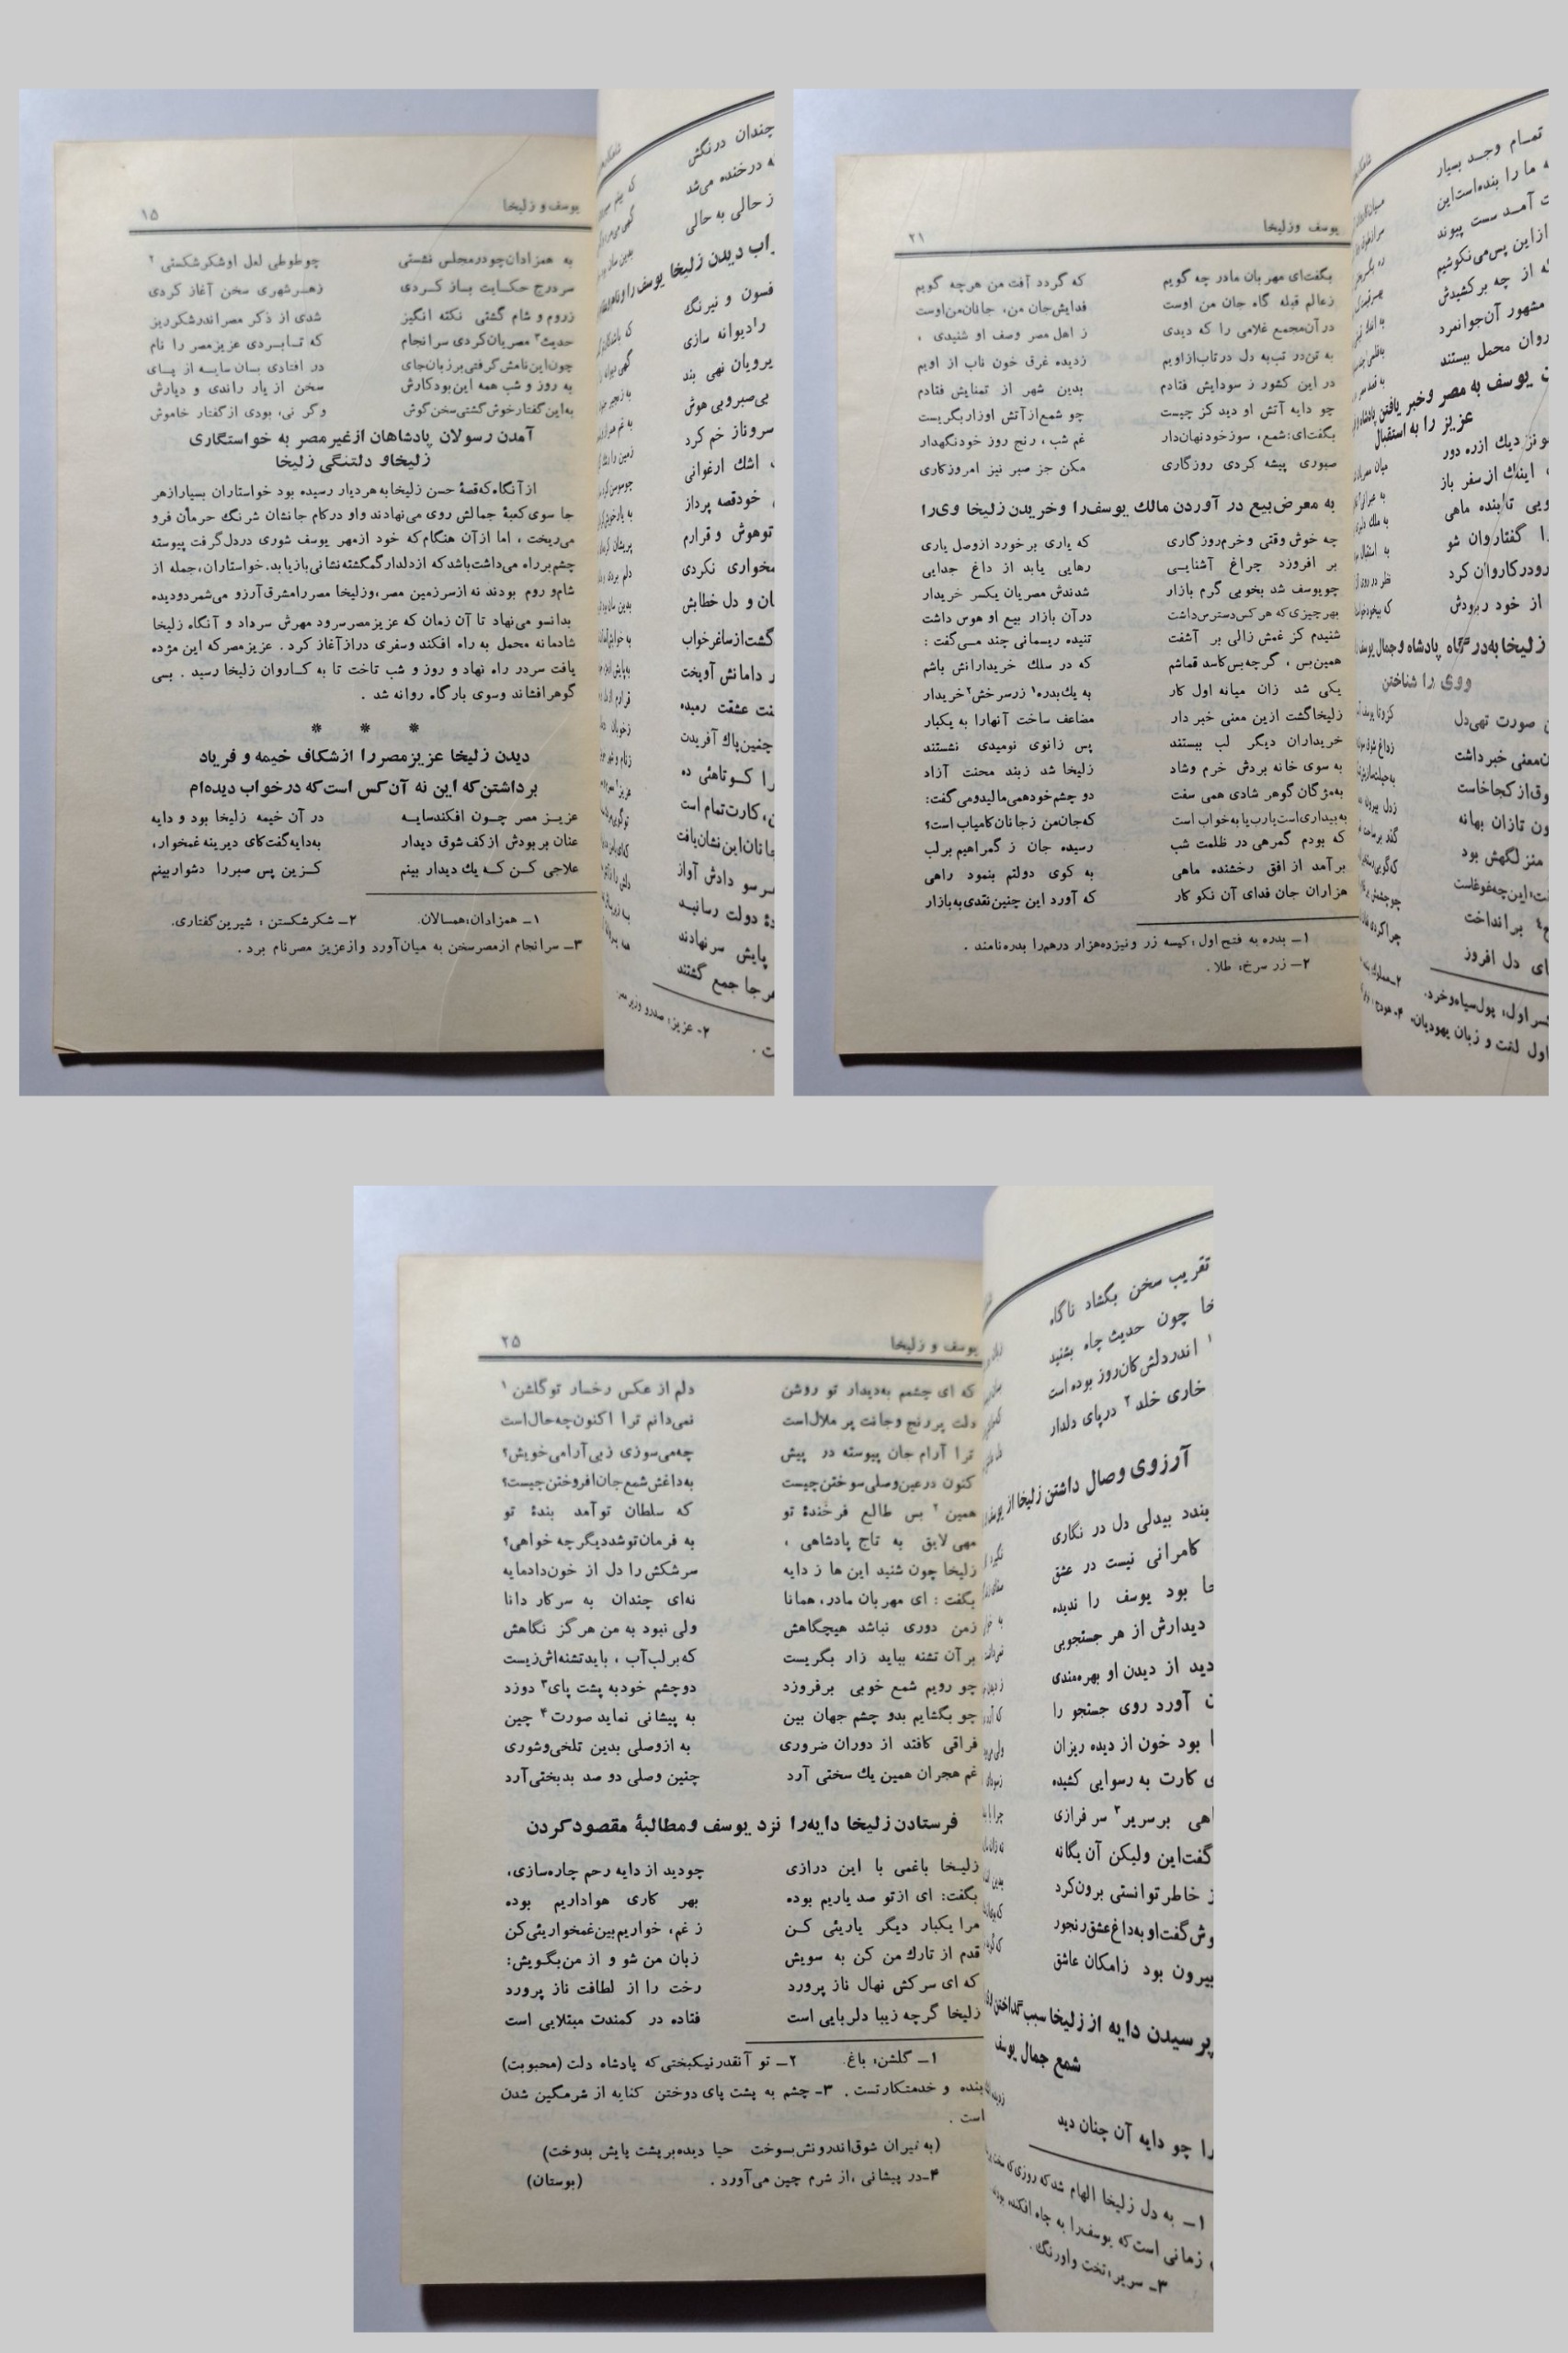 یوسف و زلیخا ۱۵
به همزادان چو در مجلس نشستی چو طوطی لعل او شکر شکستی ۲
سر درج حکایت باز کردی ز هر شهری سخن آغاز کردی
ز روم و شام گشتی نکته انگیز شدی از ذکر مصر اندر شکر ریز
حدیث۳ مصریان کردی سرانجام که تا بردی عزیز مصر را نام
چون این نامش گرفتی بر زبان جای در افتادی بسان سایه از پای
به روز و شب همه این بود کارش سخن از یار راندی و دیارش
به این گفتار خوش گشتی سخن گوش وگر نی، بودی از گفتار خاموش
آمدن رسولان پادشاهان از غیر مصر به خواستگاری
زلیخا و دلتنگی زلیخا
از آنگاه که قصهٔ حسن زلیخا به هر دیار رسیده بود خواستاران بسیار از هر
جا سوی کعبهٔ جمالش روی می‌نهادند و او در کام جانشان شرنگ حرمان فرو
می‌ریخت ، اما از آن هنگام که خود از مهر یوسف شوری در دل گرفت پیوسته
چشم بر راه می‌داشت باشد که از دلدار گمگشته نشانی باز یابد. خواستاران، جمله از
شام و روم بودند نه از سرزمین مصر، و زلیخا مصر را مشرق آرزو می‌شمرد و دیده
بدانسو می‌نهاد تا آن زمان که عزیز مصر سرود مهرش سر داد و آنگاه زلیخا
شادمانه محمل به راه افکند و سفری دراز آغاز کرد . عزیز مصر که این مژده
یافت سر در راه نهاد و روز و شب تاخت تا به کاروان زلیخا رسید . بسی
گوهر افشاند و سوی بارگاه روانه شد .
* * *
دیدن زلیخا عزیز مصر را از شکاف خیمه و فریاد
برداشتن که این نه آن کس است که در خواب دیده‌ام
عزیز مصر چون افکند سایه در آن خیمه زلیخا بود و دایه
عنان بربودش از کف شوق دیدار به دایه گفت کای دیرینه غمخوار،
علاجی کن که یك دیدار بینم کزین پس صبر را دشوار بینم
۱ــ همزادان: همسالان. ۲ــ شکر شکستن : شیرین گفتاری.
۳ــ سرانجام از مصر سخن به میان آورد و از عزیز مصر نام برد .
چندان درنگش
که در خنده می‌شد
ز حالی به حالی
خواب دیدن زلیخا یوسف را
فسون و نیرنگ
را دیوانه سازی
پرویان نهی بند
بی‌صبر و بی هوش
سرو ناز خم کرد
اشك ارغوانی
خود قصه پرداز
تو هوش و قرارم
غمخواری نکردی
جان و دل خطابش
گشت از ساغر خواب
دامانش آویخت
عشقت رمیده
چنین پاك آفریدت
را کوتاهئی ده
کارت تمام است
جانان این نشان یافت
سو دادش آواز
دولت رسانید
پایش سر نهادند
هر جا جمع گشتند
۲- عزیز: صدر و وزیر مصر
یوسف و زلیخا ۲۱
بگفت ای مهربان مادر چه گویم که گردد آفت من هر چه گویم
ز عالم قبله گاه جان من اوست فدایش جان من، جانان من اوست
در آن مجمع غلامی را که دیدی ز اهل مصر وصف او شنیدی ،
به تن در تب به دل در تاب از اویم ز دیده غرق خون ناب از اویم
در این کشور ز سودایش فتادم بدین شهر از تمنایش فتادم
چو دایه آتش او دید کز چیست چو شمع از آتش او زار بگریست
بگفت ای: شمع، سوز خود نهان دار غم شب ، رنج روز خود نگهدار
صبوری پیشه کردی روزگاری مکن جز صبر نیز امروز کاری
به معرض بیع در آوردن مالك یوسف را و خریدن زلیخا وی را
چه خوش وقتی و خرم روزگاری که یاری بر خورد از وصل یاری
بر افروزد چراغ آشنایی رهایی یابد از داغ جدایی
چو یوسف شد بخوبی گرم بازار شدندش مصریان یکسر خریدار
بهر چیزی که هر کس دسترس داشت در آن بازار بیع او هوس داشت
شنیدم کز غمش زالی بر آشفت تنیده ریسمانی چند می‌گفت :
همین بس ، گرچه بس کاسد قماشم که در سلك خریدارانش باشم
یکی شد زان میانه اول کار به یك بدره۱ زر سرخش۲ خریدار
زلیخا گشت ازین معنی خبر دار مضاعف ساخت آنها را به یکبار
خریداران دیگر لب ببستند پس زانوی نومیدی نشستند
به سوی خانه بردش خرم و شاد زلیخا شد ز بند محنت آزاد
به مژگان گوهر شادی همی سفت دو چشم خود همی مالید و می گفت:
به بیداری است یارب یا به خواب است که جان من ز جانان کامیاب است؟
که بودم گمرهی در ظلمت شب رسیده جان ز گمراهیم بر لب
بر آمد از افق رخشنده ماهی به کوی دولتم بنمود راهی
هزاران جان فدای آن نکو کار که آورد این چنین نقدی به بازار
۱ــ بدره به فتح اول : کیسه زر و نیز ده هزار درهم را بدره نامند .
۲ــ زر سرخ: طلا .
تمام وجد بسیار
ما را بنده است این
آمد سست پیوند
از این پس می نکوشیم
که از چه بر کشیدش
مشهور آن جوانمرد
روان محمل ببستند
یوسف به مصر و خبر یافتن پادشاه
عزیز را به استقبال
نزدیك از ره دور
اینك از سفر باز
تابنده ماهی
گفتا روان شو
رو در کاروان کرد
از خود ربودش
زلیخا به درگاه پادشاه و جمال یوسف
و وی را شناختن
صورت تهی دل
معنی خبر داشت
شوق از کجا خاست
تازان بهانه
منزلگهش بود
این چه غوغاست
بر انداخت
دل افروز
اول: پول سیاه و خرد.
اول لغت و زبان یهودیان.
یوسف و زلیخا ۲۵
که ای چشمم به دیدار تو روشن دلم از عکس رخسار تو گلشن ۱
دلت پر رنج و جانت پر ملال است نمی‌دانم ترا اکنون چه حال است
ترا آرام جان پیوسته در پیش چه می‌سوزی ز بی آرامی خویش؟
کنون در عین وصلی سوختن چیست به داغش شمع جان افروختن چیست؟
همین ۲ بس طالع فرخندهٔ تو که سلطان تو آمد بندهٔ تو
مهی لایق به تاج پادشاهی ، به فرمان تو شد دیگر چه خواهی؟
زلیخا چون شنید این ها ز دایه سرشکش را دل از خون داد مایه
بگفت : ای مهربان مادر، همانا نه‌ای چندان به سر کار دانا
ز من دوری نباشد هیچگاهش ولی نبود به من هرگز نگاهش
بر آن تشنه بباید زار بگریست که بر لب آب ، باید تشنه‌اش زیست
چو رویم شمع خوبی برفروزد دو چشم خود به پشت پای۳ دوزد
چو بگشایم بدو چشم جهان بین به پیشانی نماید صورت۴ چین
فراقی کافتد از دوران ضروری به از وصلی بدین تلخی و شوری
غم هجران همین یك سختی آرد چنین وصلی دو صد بدبختی آرد
فرستادن زلیخا دایه را نزد یوسف و مطالبهٔ مقصود کردن
زلیخا با غمی با این درازی چو دید از دایه رحم چاره سازی،
بگفت: ای از تو صد یاریم بوده بهر کاری هواداریم بوده
مرا یکبار دیگر یاریئی کن ز غم، خواریم بین غمخواریئی کن
قدم از تارك من کن به سویش زبان من شو و از من بگویش:
که ای سرکش نهال ناز پرورد رخت را از لطافت ناز پرورد
زلیخا گرچه زیبا دلربایی است فتاده در کمندت مبتلایی است
۱ــ گلشن: باغ. ۲ــ تو آنقدر نیکبختی که پادشاه دلت (محبوبت)
بنده و خدمتکار تست . ۳ــ چشم به پشت پای دوختن کنایه از شرمگین شدن
است .
(به نیران شوق اندرونش بسوخت حیا دیده بر پشت پایش بدوخت)
۴ــ در پیشانی ، از شرم چین می‌آورد . (بوستان)
تقریب سخن بگشاد ناگاه
چون حدیث چاه بشنید
اندر دلش کان روز بوده است
خاری خلد ۲ در پای دلدار
آرزوی وصال داشتن زلیخا از یوسف
بندد بیدلی دل در نگاری
کامرانی نیست در عشق
بود یوسف را ندیده
دیدارش از هر جستجویی
دید از دیدن او بهره‌مندی
آورد روی جستجو را
بود خون از دیده ریزان
کارت به رسوایی کشیده
بر سریر۳ سر فرازی
گفت این ولیکن آن یگانه
خاطر توانستی برون کرد
گفت او به داغ عشق رنجور
بیرون بود ز امکان عاشق
پرسیدن دایه از زلیخا سبب گداختن
شمع جمال یوسف
را چو دایه آن چنان دید
۱ــ به دل زلیخا الهام شد که روزی که سخت
زمانی است که یوسف را به چاه افکنده بودند
۳ــ سریر: تخت و اورنگ.